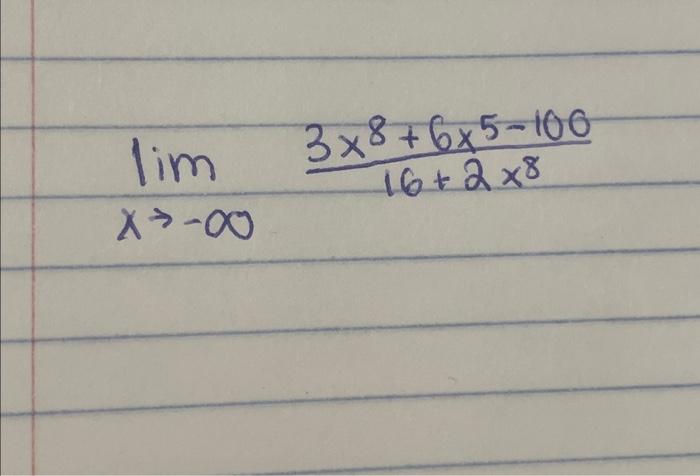 lim 3x⁸+6x⁵-100
16+2x⁸
x→-∞